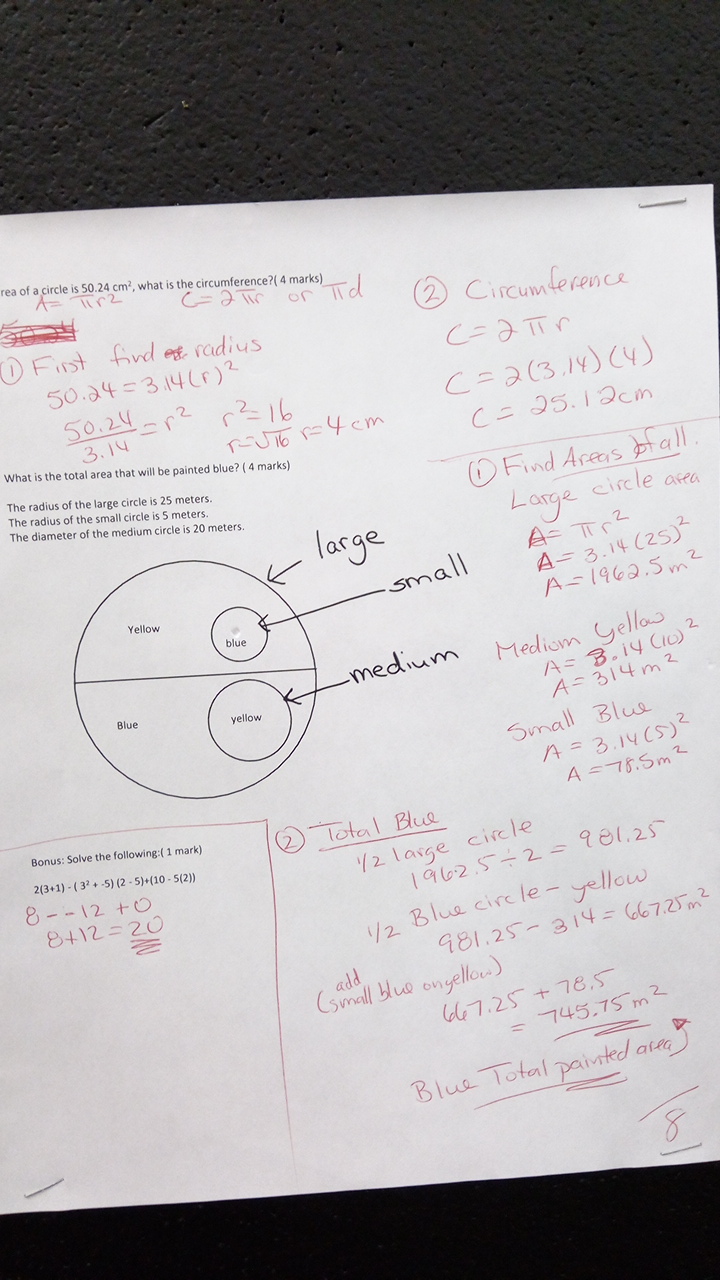 rea of a circle is 50.24 cm², what is the circumference?( 4 marks)
A = πr² C = 2πr or πd
① First find radius
50.24 = 3.14(r)²
50.24/3.14 = r² r² = 16
r = √16 r = 4 cm
② Circumference
C = 2πr
C = 2(3.14)(4)
C = 25.12cm
What is the total area that will be painted blue? ( 4 marks)
The radius of the large circle is 25 meters.
The radius of the small circle is 5 meters.
The diameter of the medium circle is 20 meters.
large
small
medium
Yellow
blue
Blue
yellow
① Find Areas of all.
Large circle area
A = πr²
A = 3.14(25)²
A = 1962.5m²
Medium Yellow
A = 3.14(10)²
A = 314m²
Small Blue
A = 3.14(5)²
A = 78.5m²
② Total Blue
1/2 large circle
1962.5 ÷ 2 = 981.25
1/2 Blue circle - yellow
981.25 - 314 = 667.25m²
add
(small blue on yellow)
667.25 + 78.5
= 745.75 m²
Blue Total painted area
8
Bonus: Solve the following:( 1 mark)
2(3+1) - ( 3² + -5) (2 - 5)+(10 - 5(2))
8 - - 12 + 0
8+12 = 20